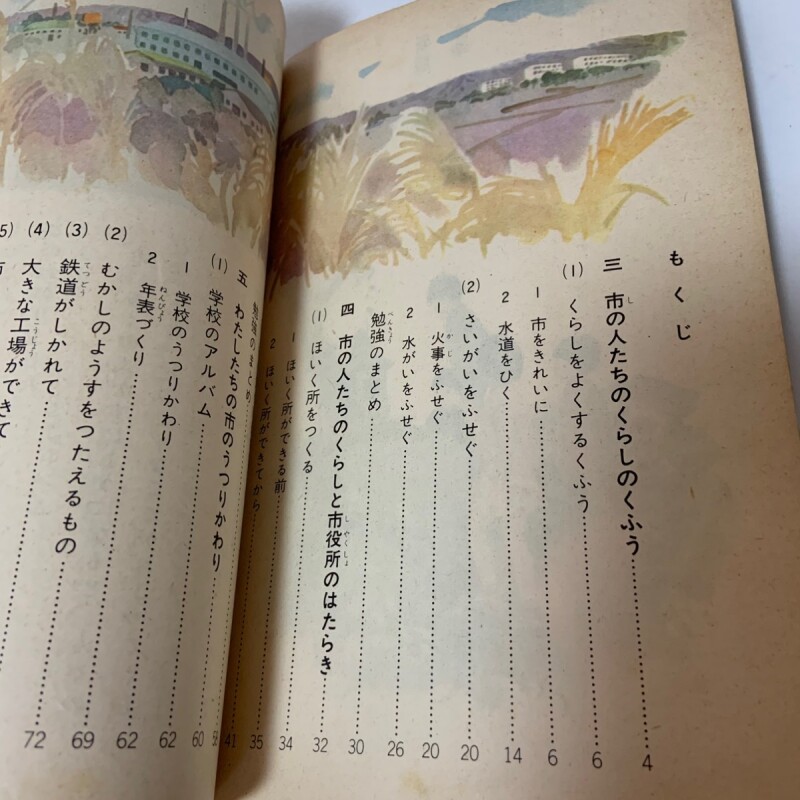 もくじ
三 市の人たちのくらしのくふう
し
(1) くらしをよくするくふう
1 市をきれいに
2 水道をひく
(2) さいがいをふせぐ
1 火事をふせぐ
かじ
2 水がいをふせぐ
勉強のまとめ
べんきょう
四 市の人たちのくらしと市役所のはたらき
しやくしょ
(1) ほいく所をつくる
1 ほいく所ができる前
2 ほいく所ができてから
勉強のまとめ
五 わたしたちの市のうつりかわり
(1) 学校のアルバム
1 学校のうつりかわり
2 年表づくり
ねんぴょう
(2) むかしのようすをつたえるもの
(3) 鉄道がしかれて
てつどう
(4) 大きな工場ができて
こうじょう
4
6
6
14
20
20
26
30
32
34
35
41
60
62
62
69
72